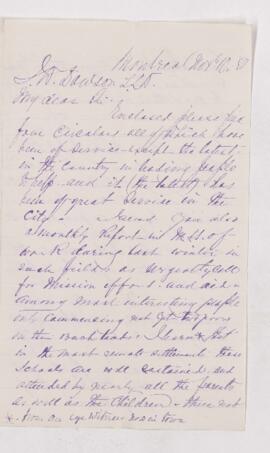 Montreal Nov 10. 5
J. W. Dawson L.L.D.
My dear Sir
Enclosed please find
four Circulars all of which have
been of service except the latest
in the Country in leading people
to help and it (the latest) has
been of great service in the
City. I send you also
a monthly Report in M.S. of
work during last winter in
such fields as urgently call
for Mission effort and aid
among most interesting people
only commencing not yet
in the Backwoods. I learn that
in the most remote settlements these
Schools are well sustained and
attended by nearly all the parents
as well as the Children these not
from an eye witness now in town